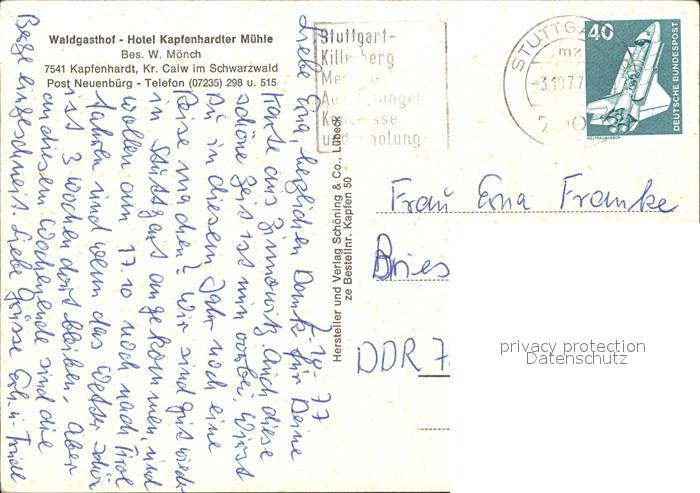 Waldgasthof - Hotel Kapfenhardter Mühle
Bes. W. Mönch
7541 Kapfenhardt, Kr. Calw im Schwarzwald
Post Neuenbürg - Telefon (07235) 298 u. 515
Stuttgart-
Killesberg
STUTTGART
-3.10.77
40
DEUTSCHE BUNDESPOST
Hersteller und Verlag Schöning & Co., Lübeck
ze Bestellnr. Kapfen 50
2-10-77
Liebe Erna, herzlichen Dank für Deine
Karte aus Zinnowitz. Auch diese
schöne Zeit ist nun vorbei. Wirst
Du in diesem Jahr noch eine
Reise machen? Wir sind gut wieder
in Stuttgart angekommen, und
wollen am 17.10 noch nach Tirol
fahren und wenn das Wetter schön
ist 3 Wochen dort bleiben. Aber
an diesem Wochenende sind die
Berge eingeschneit. Liebe Grüsse
Frau Erna Franke
Bries
DDR 7
privacy protection
Datenschutz